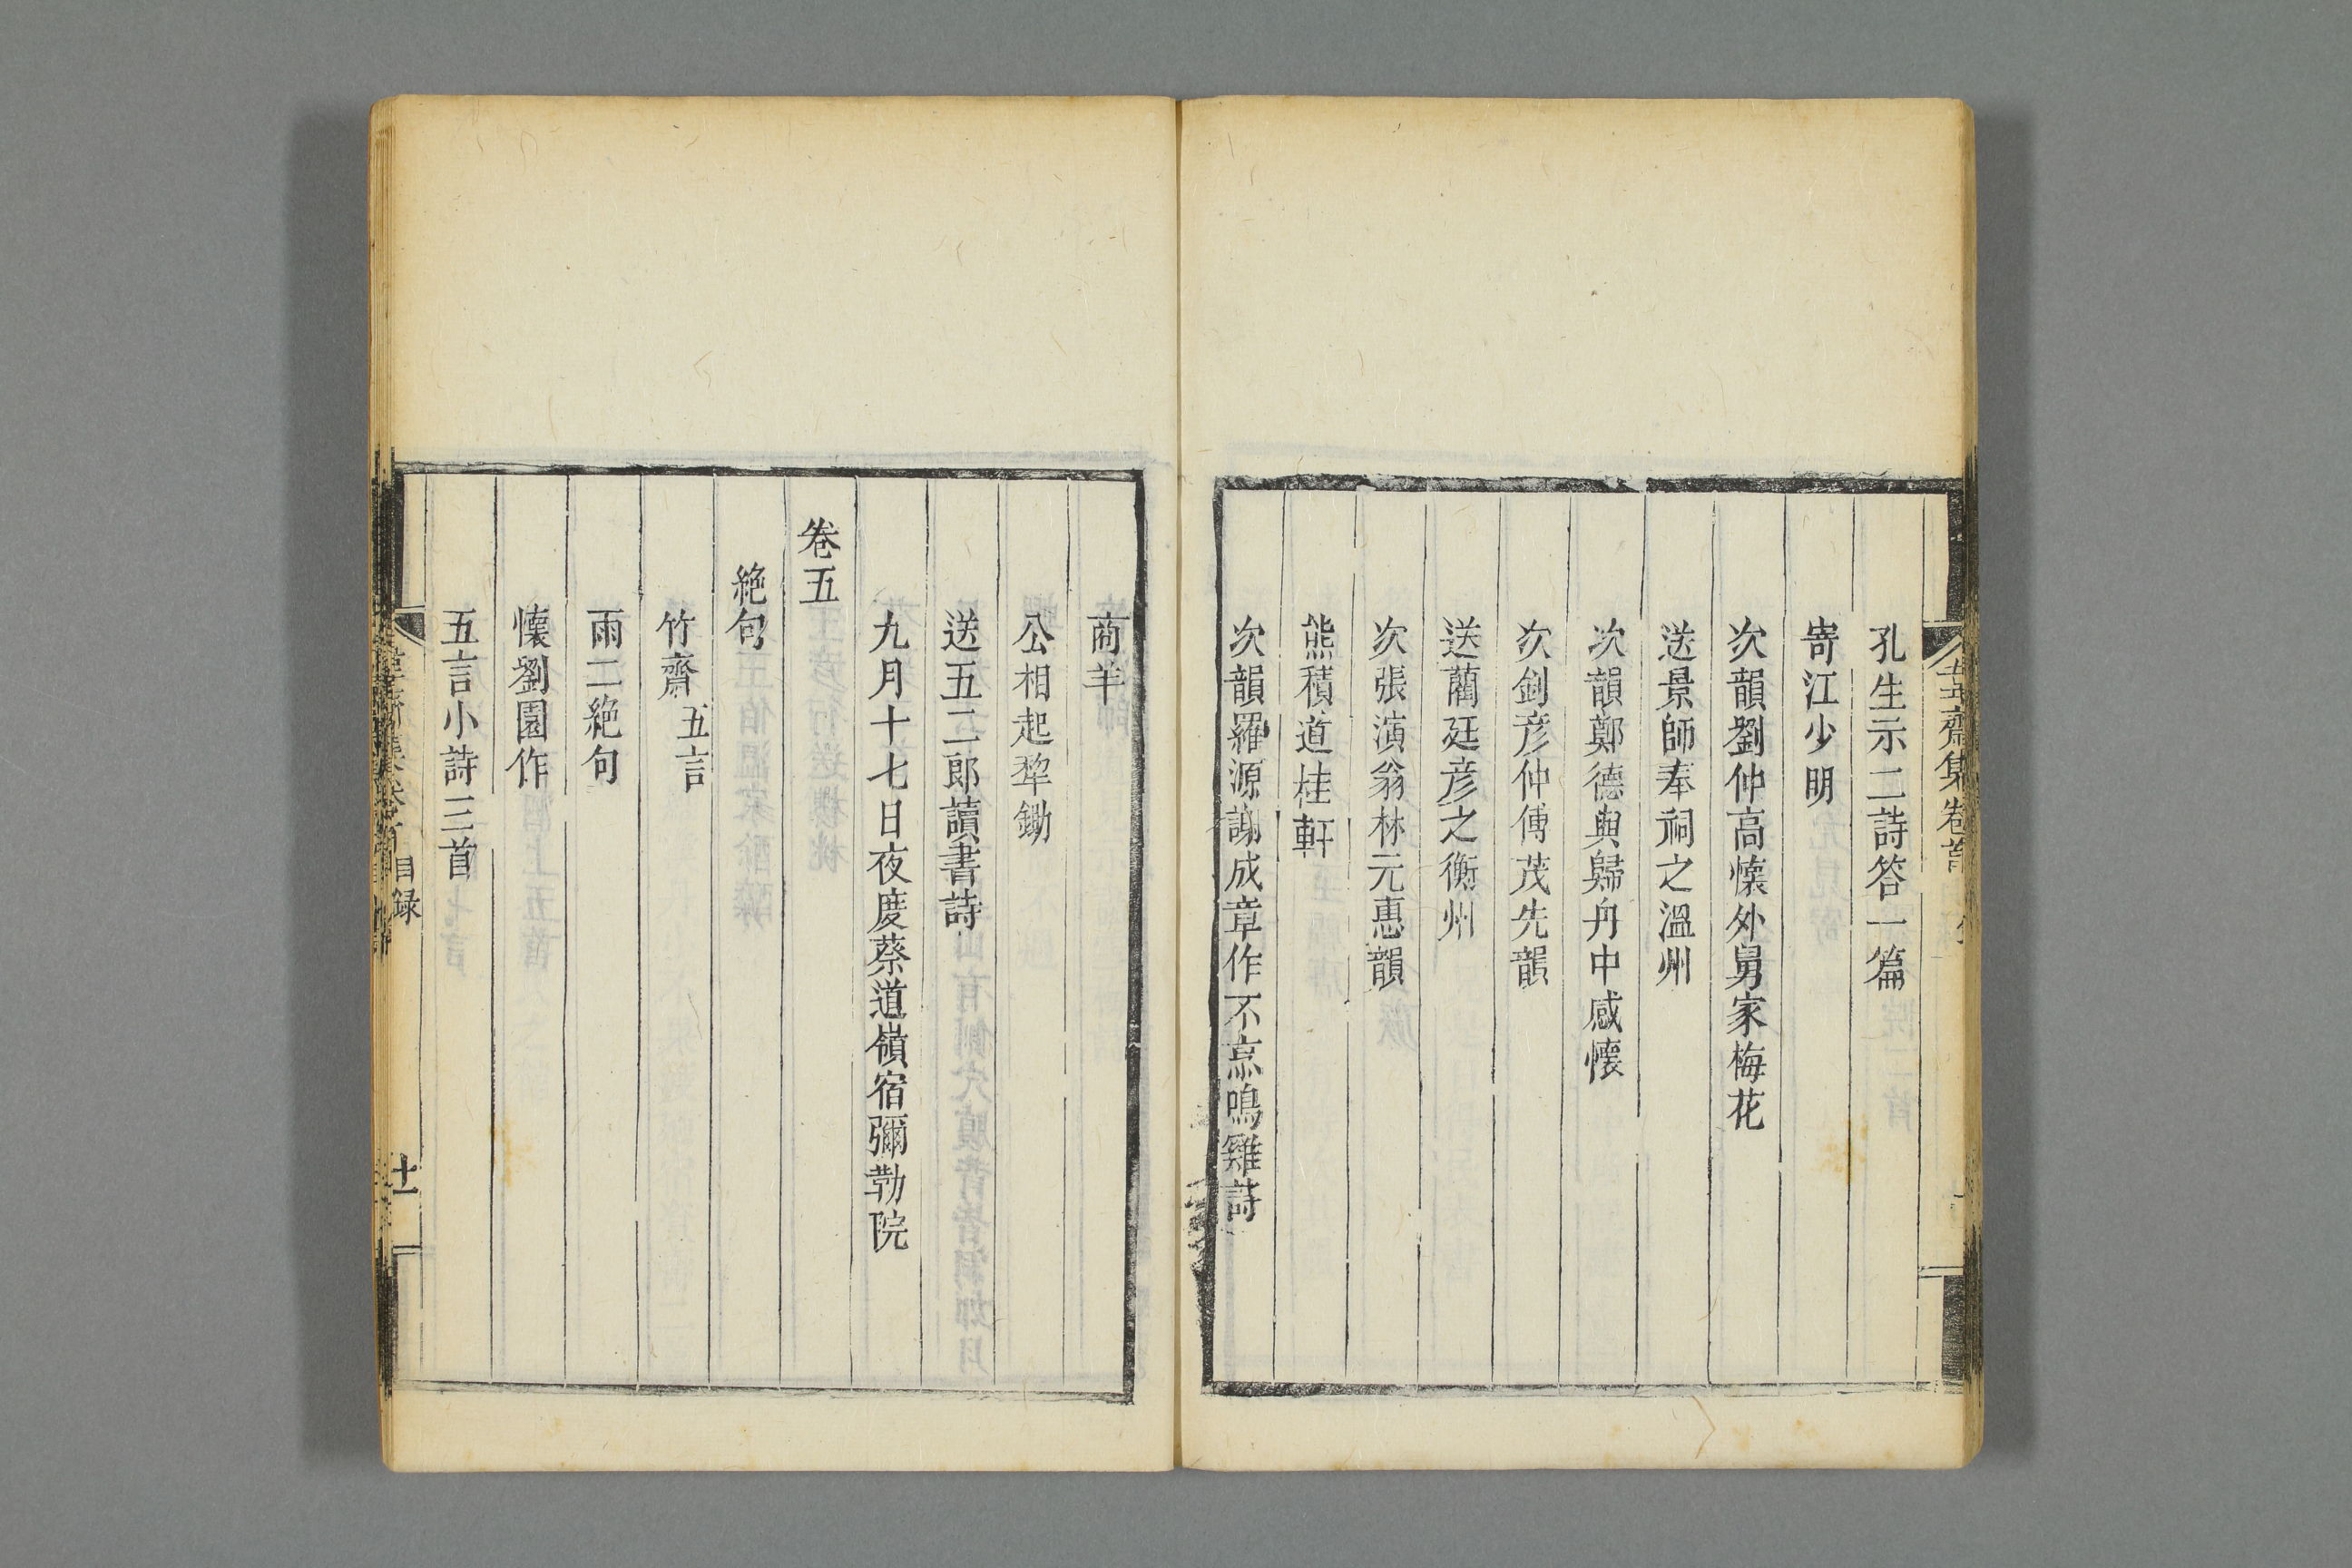 孔生示二詩答一篇
寄江少明
次韻劉仲高懷外舅家梅花
送景師奉祠之溫州
次韻鄭德與歸舟中感懷
次劉彥仲傅茂先韻
送藺廷彥之衡州
次張演翁林元惠韻
熊積道桂軒
次韻羅源謝成章作不烹鳴雞詩
商羊
公相起犂鋤
送五二郎讀書詩
九月十七日夜度蔡道嶺宿彌勒院
卷五
絶句
竹齋 五言
雨二絶句
懷劉園作
五言小詩三首
目録
十一